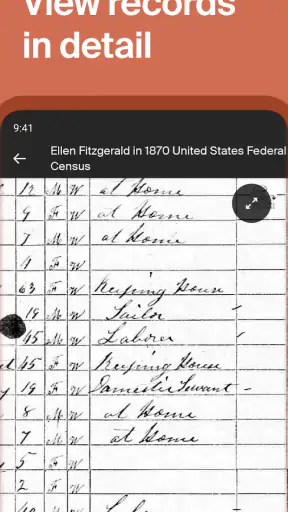 View records
in detail
9:41
Ellen Fitzgerald in 1870 United States Federal
Census
12 M W at Home
9 F W at Home
7 M W at Home
4 F W
63 F W Keeping House
18 M W Sailor
45 M W Laborer
45 F W Keeping House
19 F W Domestic Servant
8 M W at Home
7 M W at Home
5 F W
2 F W